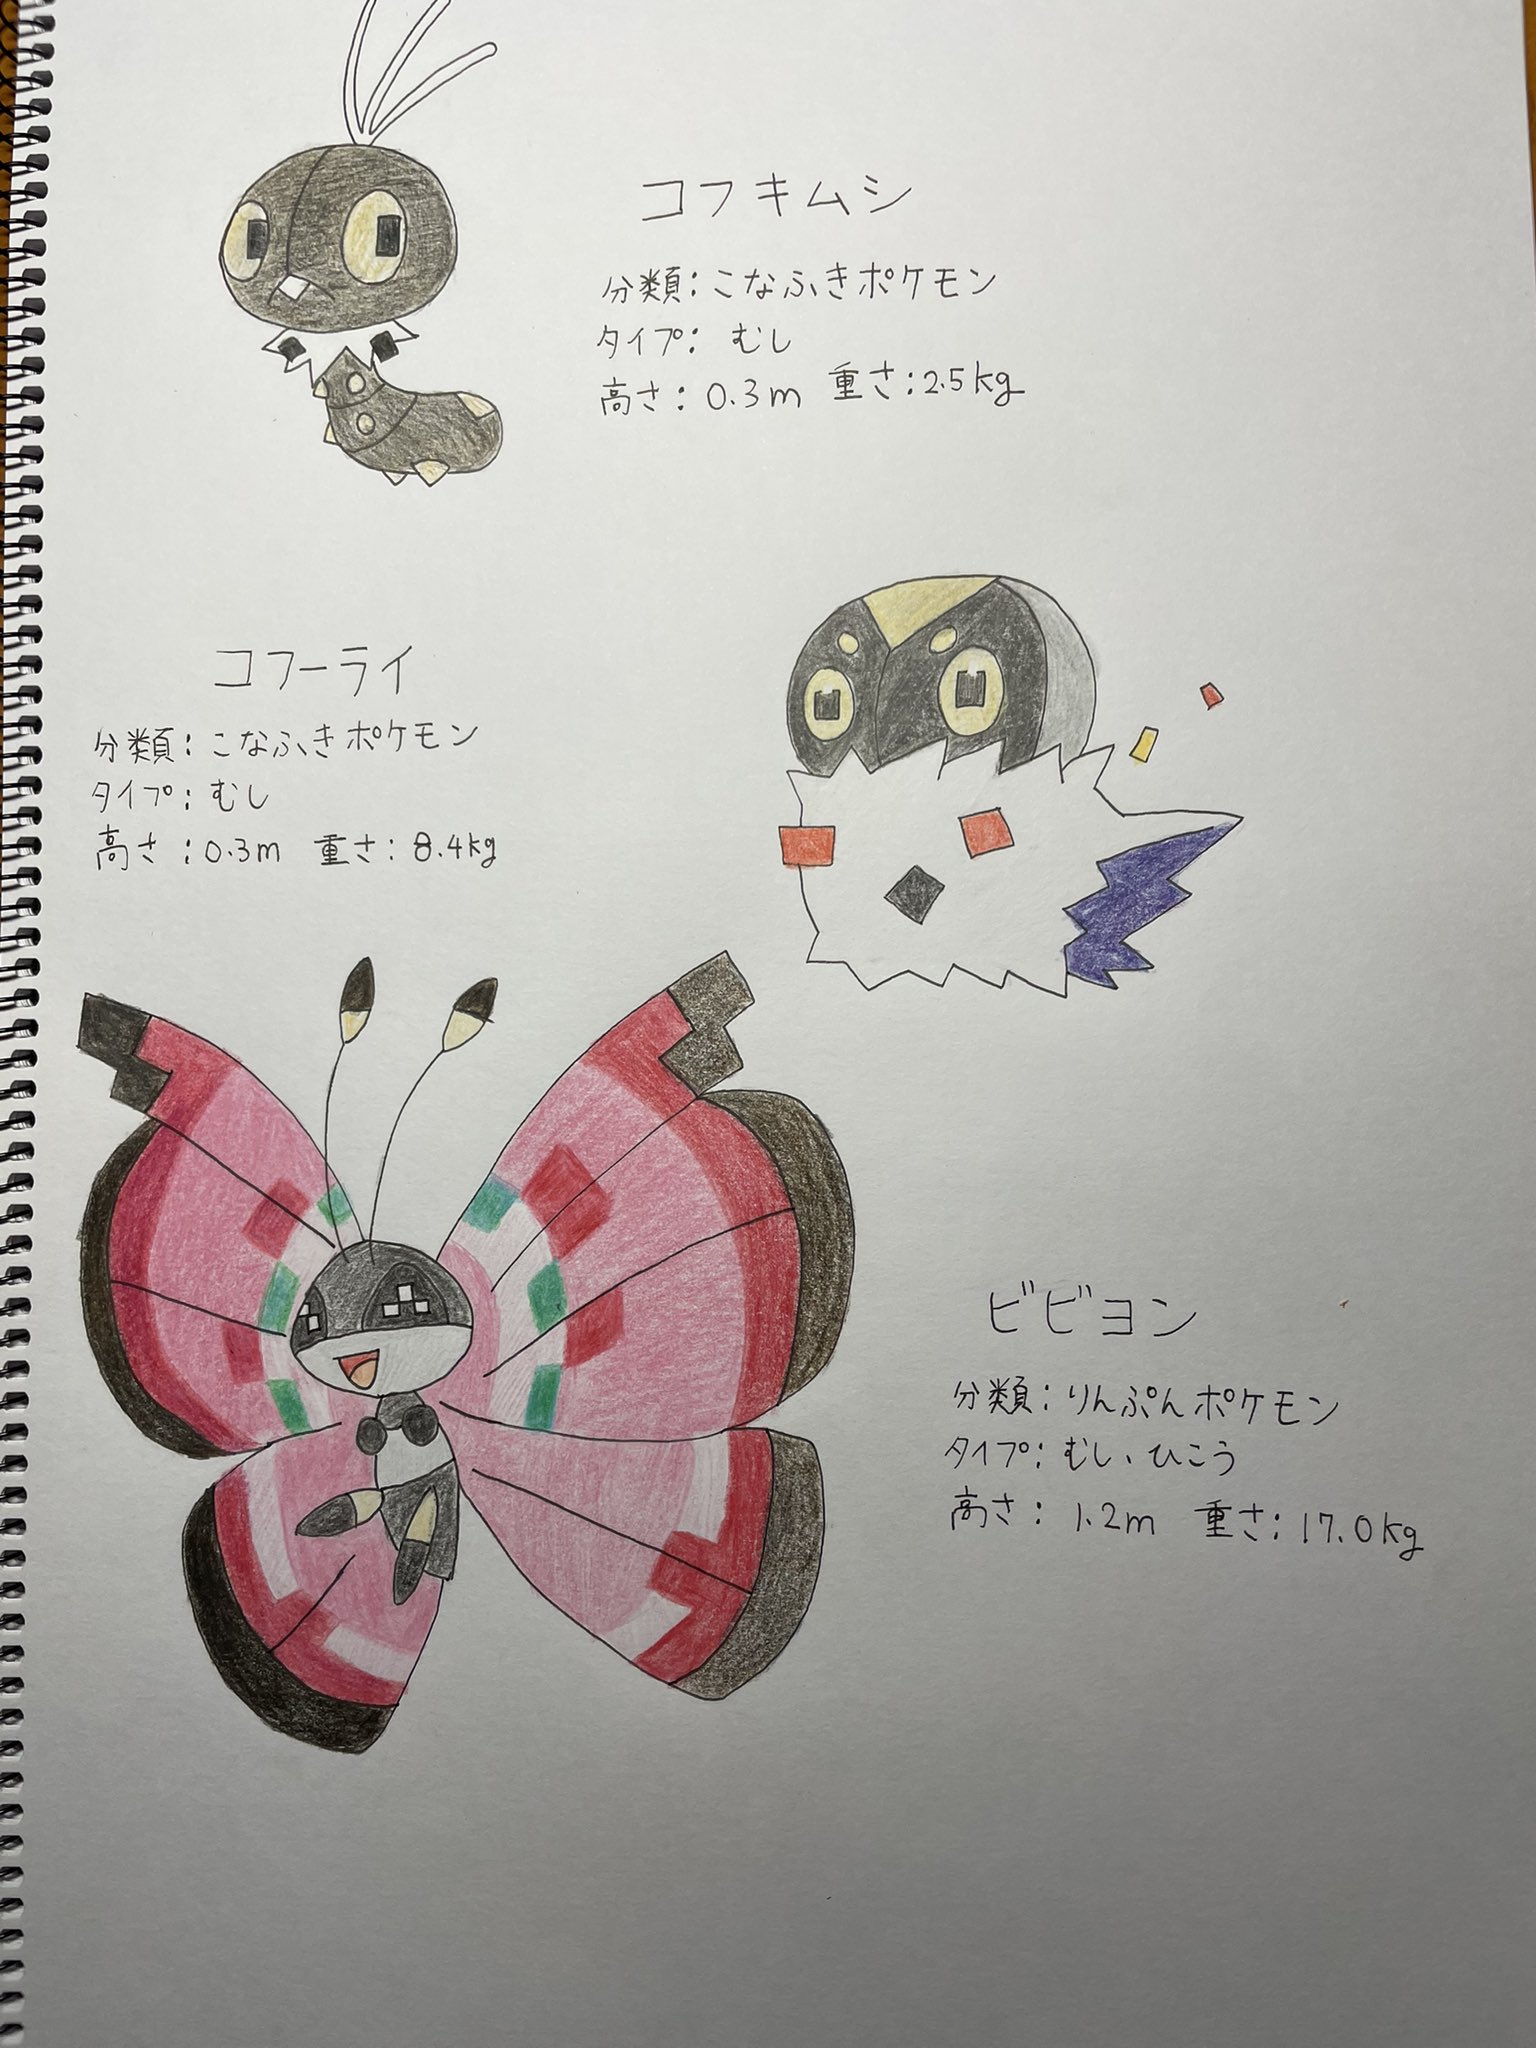 コフキムシ
分類：こなふきポケモン
タイプ：むし
高さ：0.3m 重さ：2.5kg
コフーライ
分類：こなふきポケモン
タイプ：むし
高さ：0.3m 重さ：8.4kg
ビビヨン
分類：りんぷんポケモン
タイプ：むし、ひこう
高さ：1.2m 重さ：17.0kg